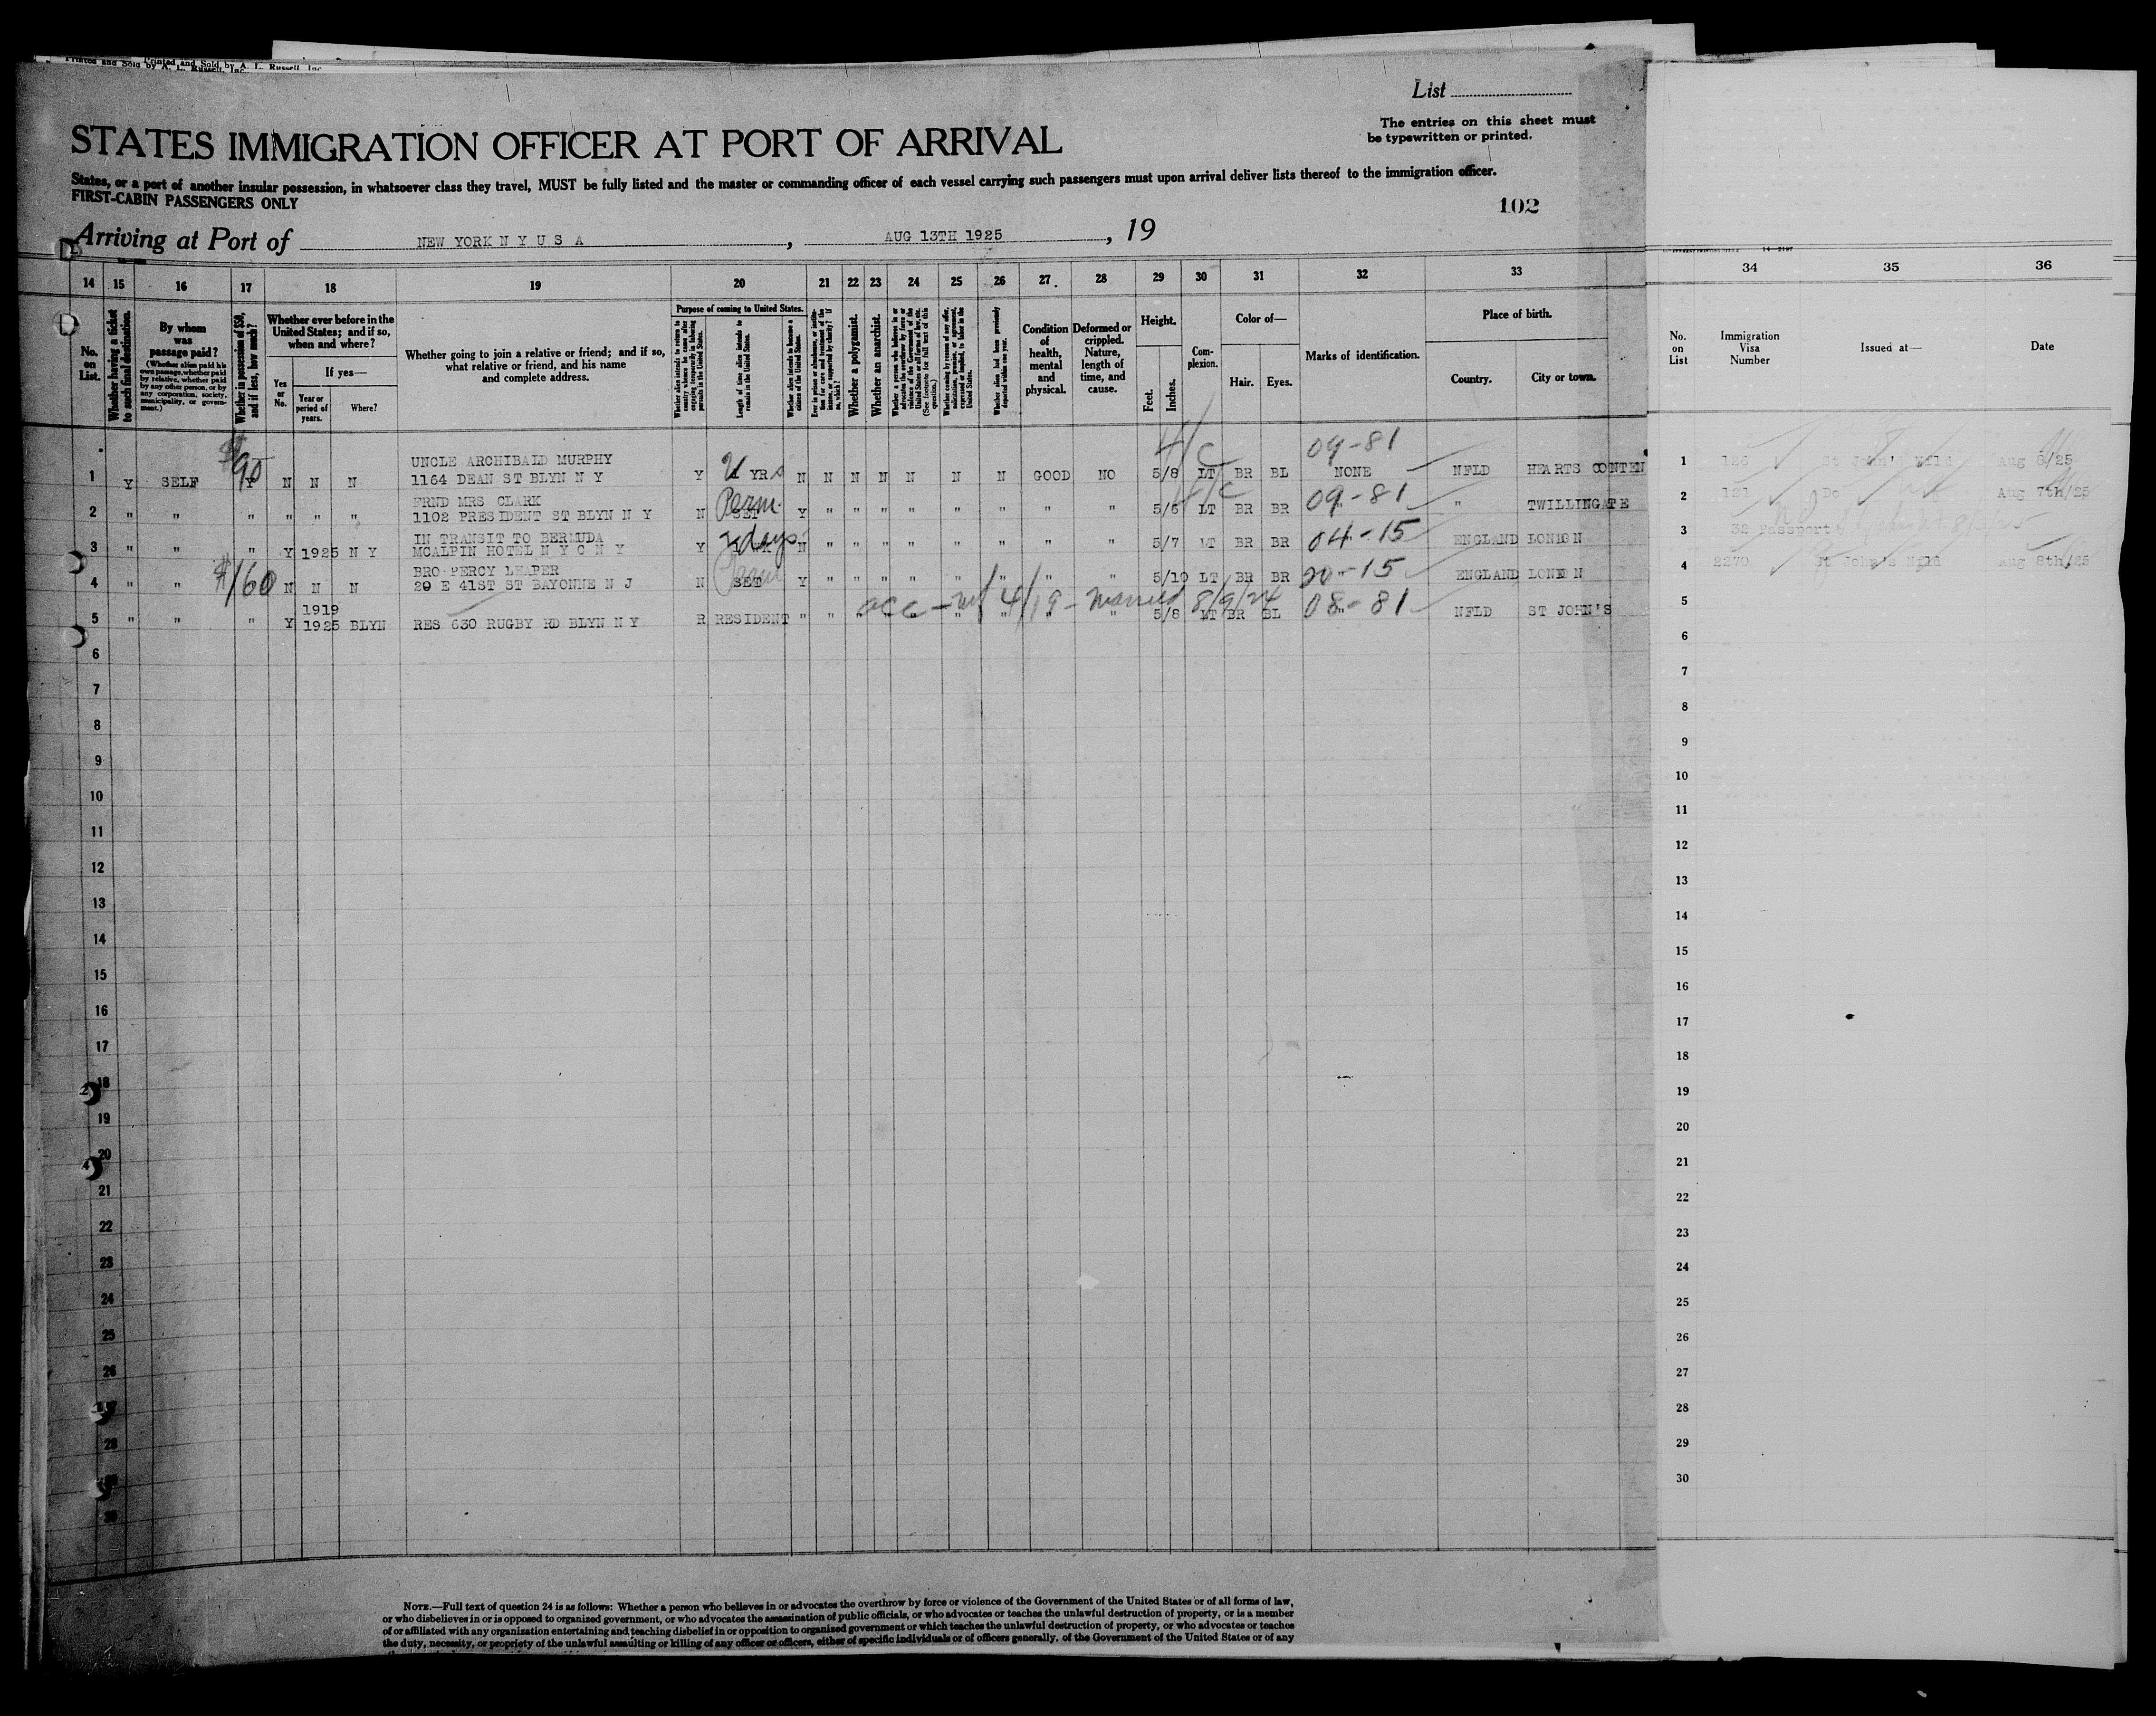 Printed and Sold by A. L. Russell, Inc
List
The entries on this sheet must
be typewritten or printed.
STATES IMMIGRATION OFFICER AT PORT OF ARRIVAL
States, or a port of another insular possession, in whatsoever class they travel, MUST be fully listed and the master or commanding officer of each vessel carrying such passengers must upon arrival deliver lists thereof to the immigration officer.
FIRST-CABIN PASSENGERS ONLY
102
Arriving at Port of NEW YORK N Y U S A , AUG 13TH 1925 , 19
14 15 16 17 18 19 20 21 22 23 24 25 26 27 28 29 30 31 32 33 34 35 36
No. on List.
Whether having a ticket to such final destination.
By whom was passage paid?
(Whether alien paid his own passage, whether paid by relative, whether paid by any other person, or by any corporation, society, municipality, or government.)
Whether in possession of $50, and if less, how much?
Whether ever before in the United States; and if so, when and where?
Yes or No.
If yes—
Year or period of years.
Where?
Whether going to join a relative or friend; and if so, what relative or friend, and his name and complete address.
Purpose of coming to United States.
Length of time alien intends to remain in the United States.
Whether a polygamist.
Whether an anarchist.
Condition of health, mental and physical.
Deformed or crippled. Nature, length of time, and cause.
Height.
Feet. Inches.
Complexion.
Color of—
Hair. Eyes.
Marks of identification.
Place of birth.
Country. City or town.
No. on List
Immigration Visa Number
Issued at—
Date
$90 4/C 09-81
UNCLE ARCHIBALD MURPHY
1 Y SELF Y N N N 1164 DEAN ST BLYN N Y Y YRS N N N N N N N GOOD NO 5/8 LT BR BL NONE NFLD HEARTS CONTEN 1 126 St John's Nfld Aug 8/25
FRND MRS CLARK
2 " " " " " " 1102 PRESIDENT ST BLYN N Y N Perm. SET Y " " " " " " " " 5/6 LT BR BR 09-81 " TWILLINGATE 2 121 Do Aug 7th/25
IN TRANSIT TO BERMUDA
3 " " " Y 1925 N Y MCALPIN HOTEL N Y C N Y Y days N " " " " " " " " 5/7 LT BR BR 04-15 ENGLAND LONDON 3 32 Passport
BRO PERCY LEAPER
4 " " $160 N N N 29 E 41ST ST BAYONNE N J N SET Y " " " " " " " " 5/10 LT BR BR 20-15 ENGLAND LONDON 4 2270 St John's Nfld Aug 8th/25
acc - 4/19 - married 8/9/24
1919
5 " " " Y 1925 BLYN RES 630 RUGBY RD BLYN N Y R RESIDENT " " " " " " " " 5/8 LT BR BL 08-81 NFLD ST JOHN'S 5
6 6
7 7
8 8
9 9
10 10
11 11
12 12
13 13
14 14
15 15
16 16
17 17
18 18
19 19
20 20
21 21
22 22
23 23
24 24
25 25
26 26
27 27
28 28
29 29
30 30
NOTE.—Full text of question 24 is as follows: Whether a person who believes in or advocates the overthrow by force or violence of the Government of the United States or of all forms of law,
or who disbelieves in or is opposed to organized government, or who advocates the assassination of public officials, or who advocates or teaches the unlawful destruction of property, or is a member
of or affiliated with any organization entertaining and teaching disbelief in or opposition to organized government or which teaches the unlawful destruction of property, or who advocates or teaches
the duty, necessity, or propriety of the unlawful assaulting or killing of any officer or officers, either of specific individuals or of officers generally, of the Government of the United States or of any